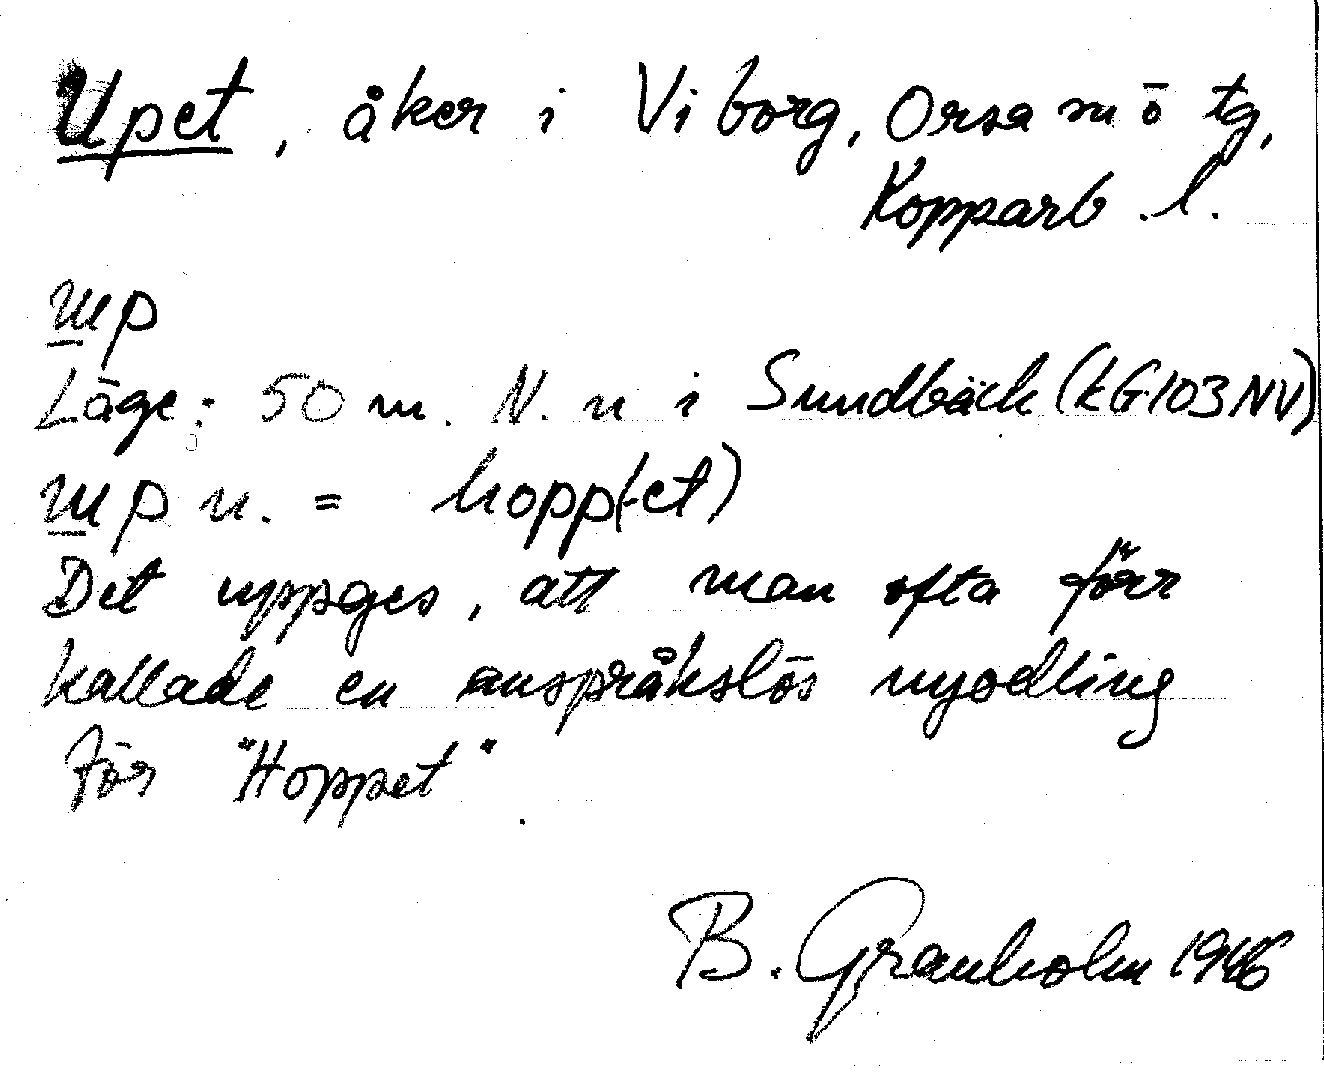 Upet, åker i Viborg, Orsa m ö tg,
Kopparb. l.
Läge: 50 m. N. n i Sundbäck (kG.103 NV)
n. = hopp(-et)
Det uppges, att man ofta förr
kallade en anspråkslös nyodling
för "Hoppet".
B. Granholm 1946